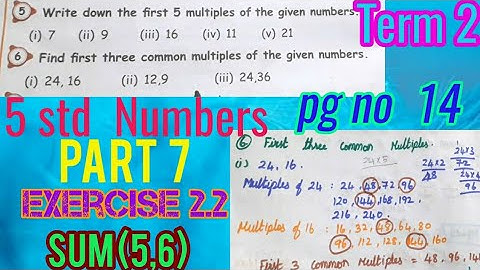 5 Write down the first 5 multiples of the given numbers.
(i) 7 (ii) 9 (iii) 16 (iv) 11 (v) 21
6 Find first three common multiples of the given numbers.
(i) 24, 16 (ii) 12,9 (iii) 24,36
Term 2
5 std Numbers
pg no 14
PART 7
EXERCISE 2.2
SUM(5,6)
6 First three Common Multiples.
(i) 24, 16.
24×5
24×3
24×2 72
48 24×4
96
Multiples of 24 : 24, 48, 72, 96
120, 144, 168, 192,
216, 240.
Multiples of 16 : 16, 32, 48, 64, 80
96, 112, 128, 144, 160
First 3 common Multiples = 48, 96, 14